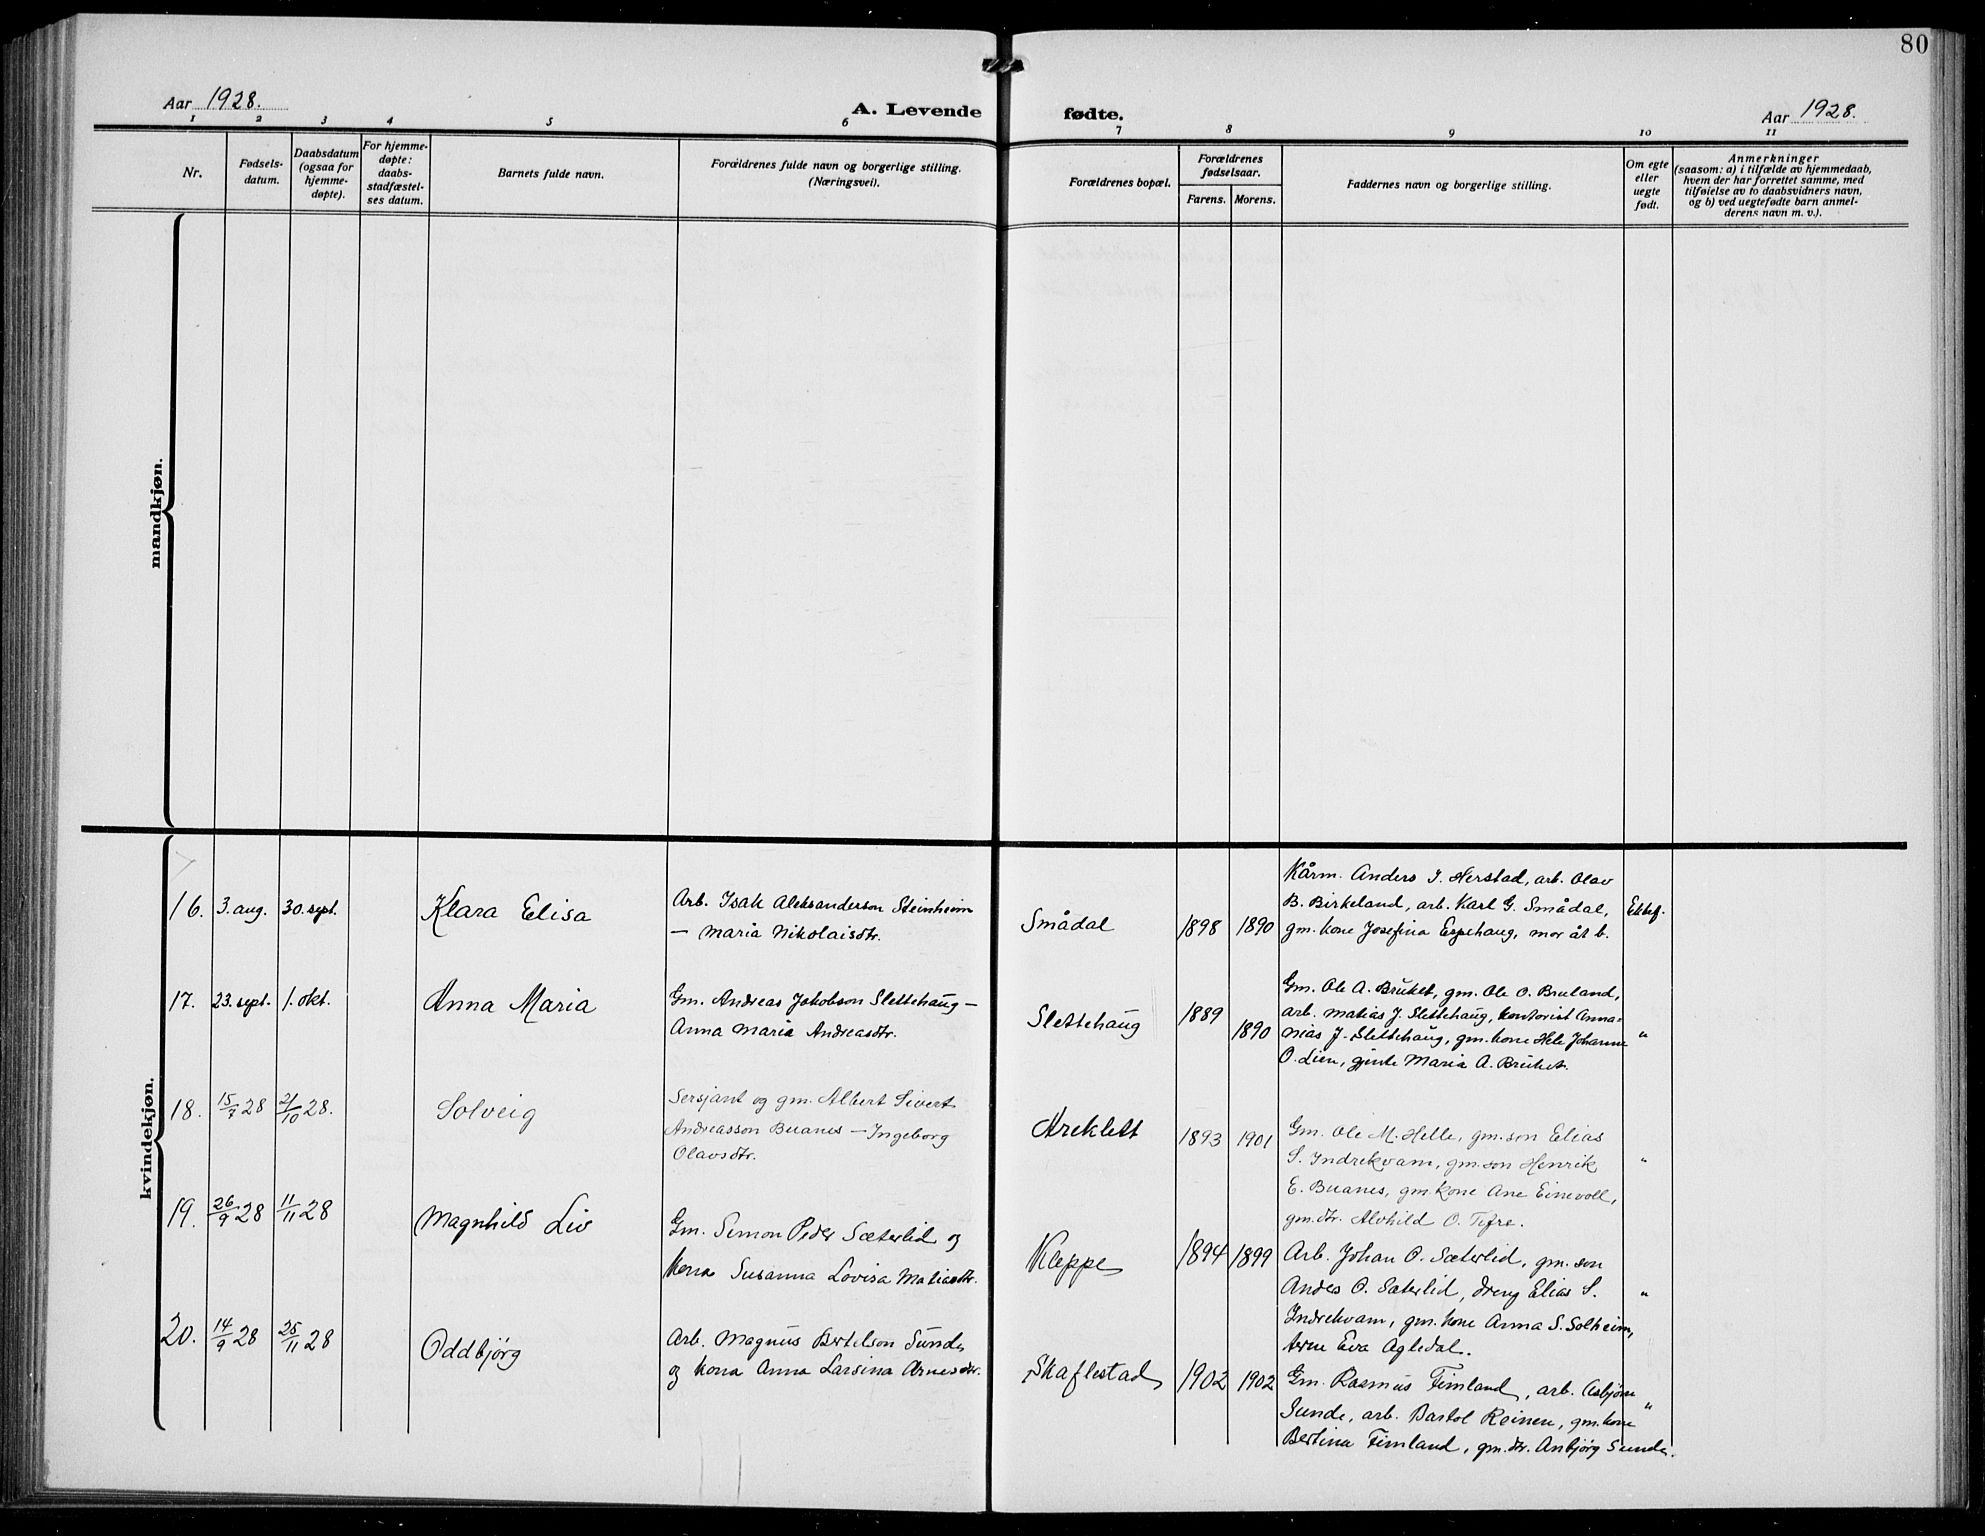 80
Aar 1928.
A. Levende fødte.
Aar 1928.
1 2 3 4 5 6 7 8 9 10 11
Nr.
Fødsels-
datum.
Daabsdatum
(ogsaa for
hjemme-
døpte).
For hjemme-
døpte:
daabs-
stadfæstel-
ses datum.
Barnets fulde navn.
Forældrenes fulde navn og borgerlige stilling.
(Næringsvei).
Forældrenes bopæl.
Forældrenes
fødselsaar.
Farens. Morens.
Faddernes navn og borgerlige stilling.
Om egte
eller
uegte
født.
Anmerkninger
(saasom: a) i tilfælde av hjemmedaab,
hvem der har forrettet samme, med
tilføielse av to daabsvidners navn,
og b) ved uegtefødte barn anmel-
derens navn m. v.).
mandkjøn.
kvindekjøn.
16. 3. aug. 30. sept. Klara Elisa
Arb. Isak Aleksanderson Steinheim
— Maria Nikolaisdtr.
Smådal 1898 1890
Kårm. Anders I. Herstad, arb. Olav
B. Birkeland, arb. Karl G. Smådal,
gm. kone Josefina Espehaug, mor åt b.
Ektef.
17. 23. sept. 1. okt. Anna Maria
Gm. Andreas Jakobson Slettehaug —
Anna Maria Andreasdtr.
Slettehaug 1889 1890
Gm. Ole A. Bruket, gm. Ole O. Bruland,
arb. Matias J. Slettehaug, kontorist Anna-
nias J. Slettehaug, gm. kone Hele Johanne
O. Lien, gjente Maria A. Bruket.
"
18. 15/7 28 21/10 28. Solveig
Sersjant og gm. Albert Sivert
Andreasson Buanes — Ingeborg
Olavsdtr.
Areklett 1893 1901
Gm. Ole M. Helle, gm. son Elias
S. Indrekvam, gm. son Henrik
E. Buanes, gm. kone Ane Einevoll,
gm. dtr. Alvhild O. Tefre.
"
19. 26/9 28 11/11 28 Magnhild Liv
Gm. Simon Peder Sæterlid og
kona Susanna Lovisa Matiasdtr.
Kleppe 1894 1899
Arb. Johan O. Sæterlid, gm. son
Anders O. Sæterlid, dreng Elias S.
Indrekvam, gm. kone Anna S. Solheim,
terne Eva Agledal.
"
20. 14/9 28 25/11 28 Oddbjörg
Arb. Magnus Bertelson Sunde
og kona Anna Larsina Arnesdtr.
Skaflestad 1902 1902
Gm. Rasmus Fimland, arb. Asbjörn
Sunde, arb. Bastol Reinen, gm. kone
Bertina Fimland, gm. dtr. Anbjörg Sunde.
"